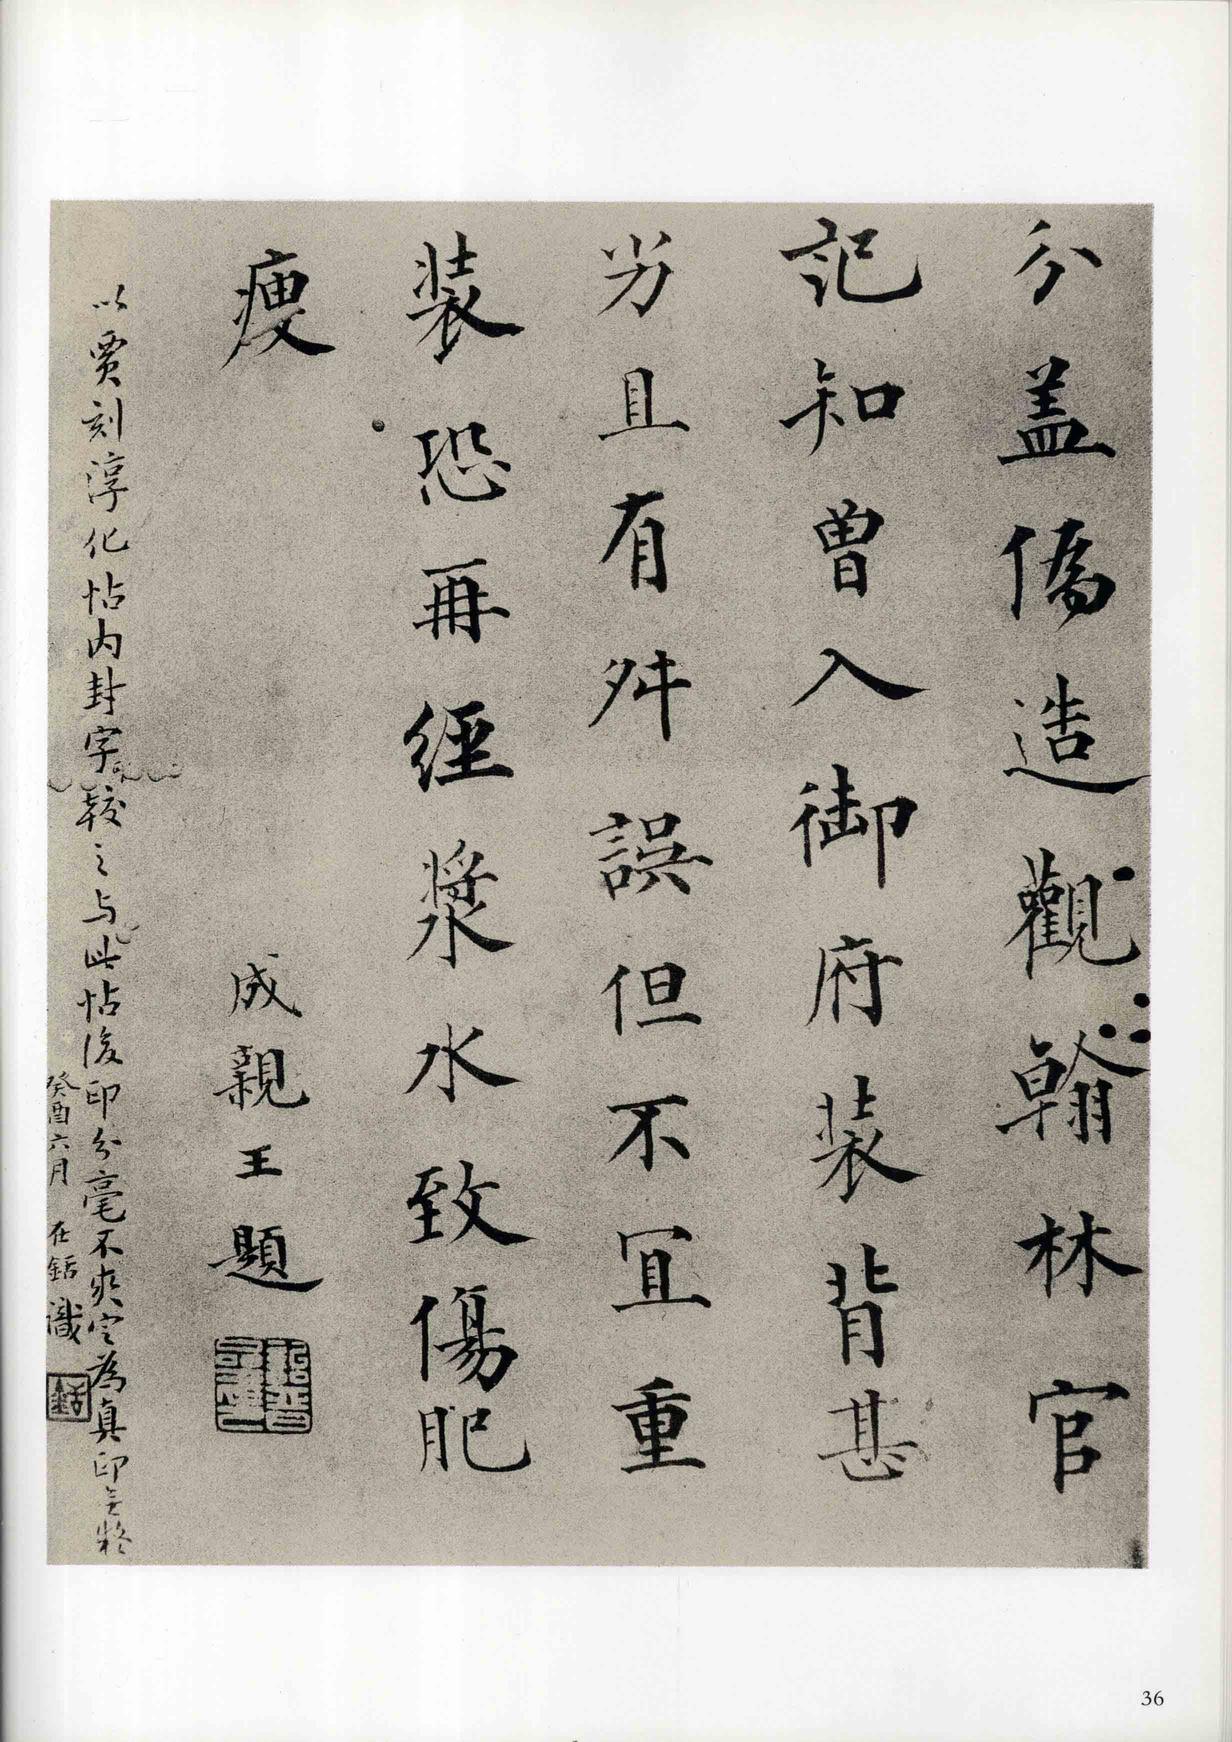 分盖僞造觀翰林官
記知曾入御府装背甚
劣且有舛誤但不宜重
装恐再經漿水致傷肥
瘦
成親王題
以賈刻淳化帖内封字較之与此帖後印分毫不爽定為真印無疑
癸酉六月 在銛識
36